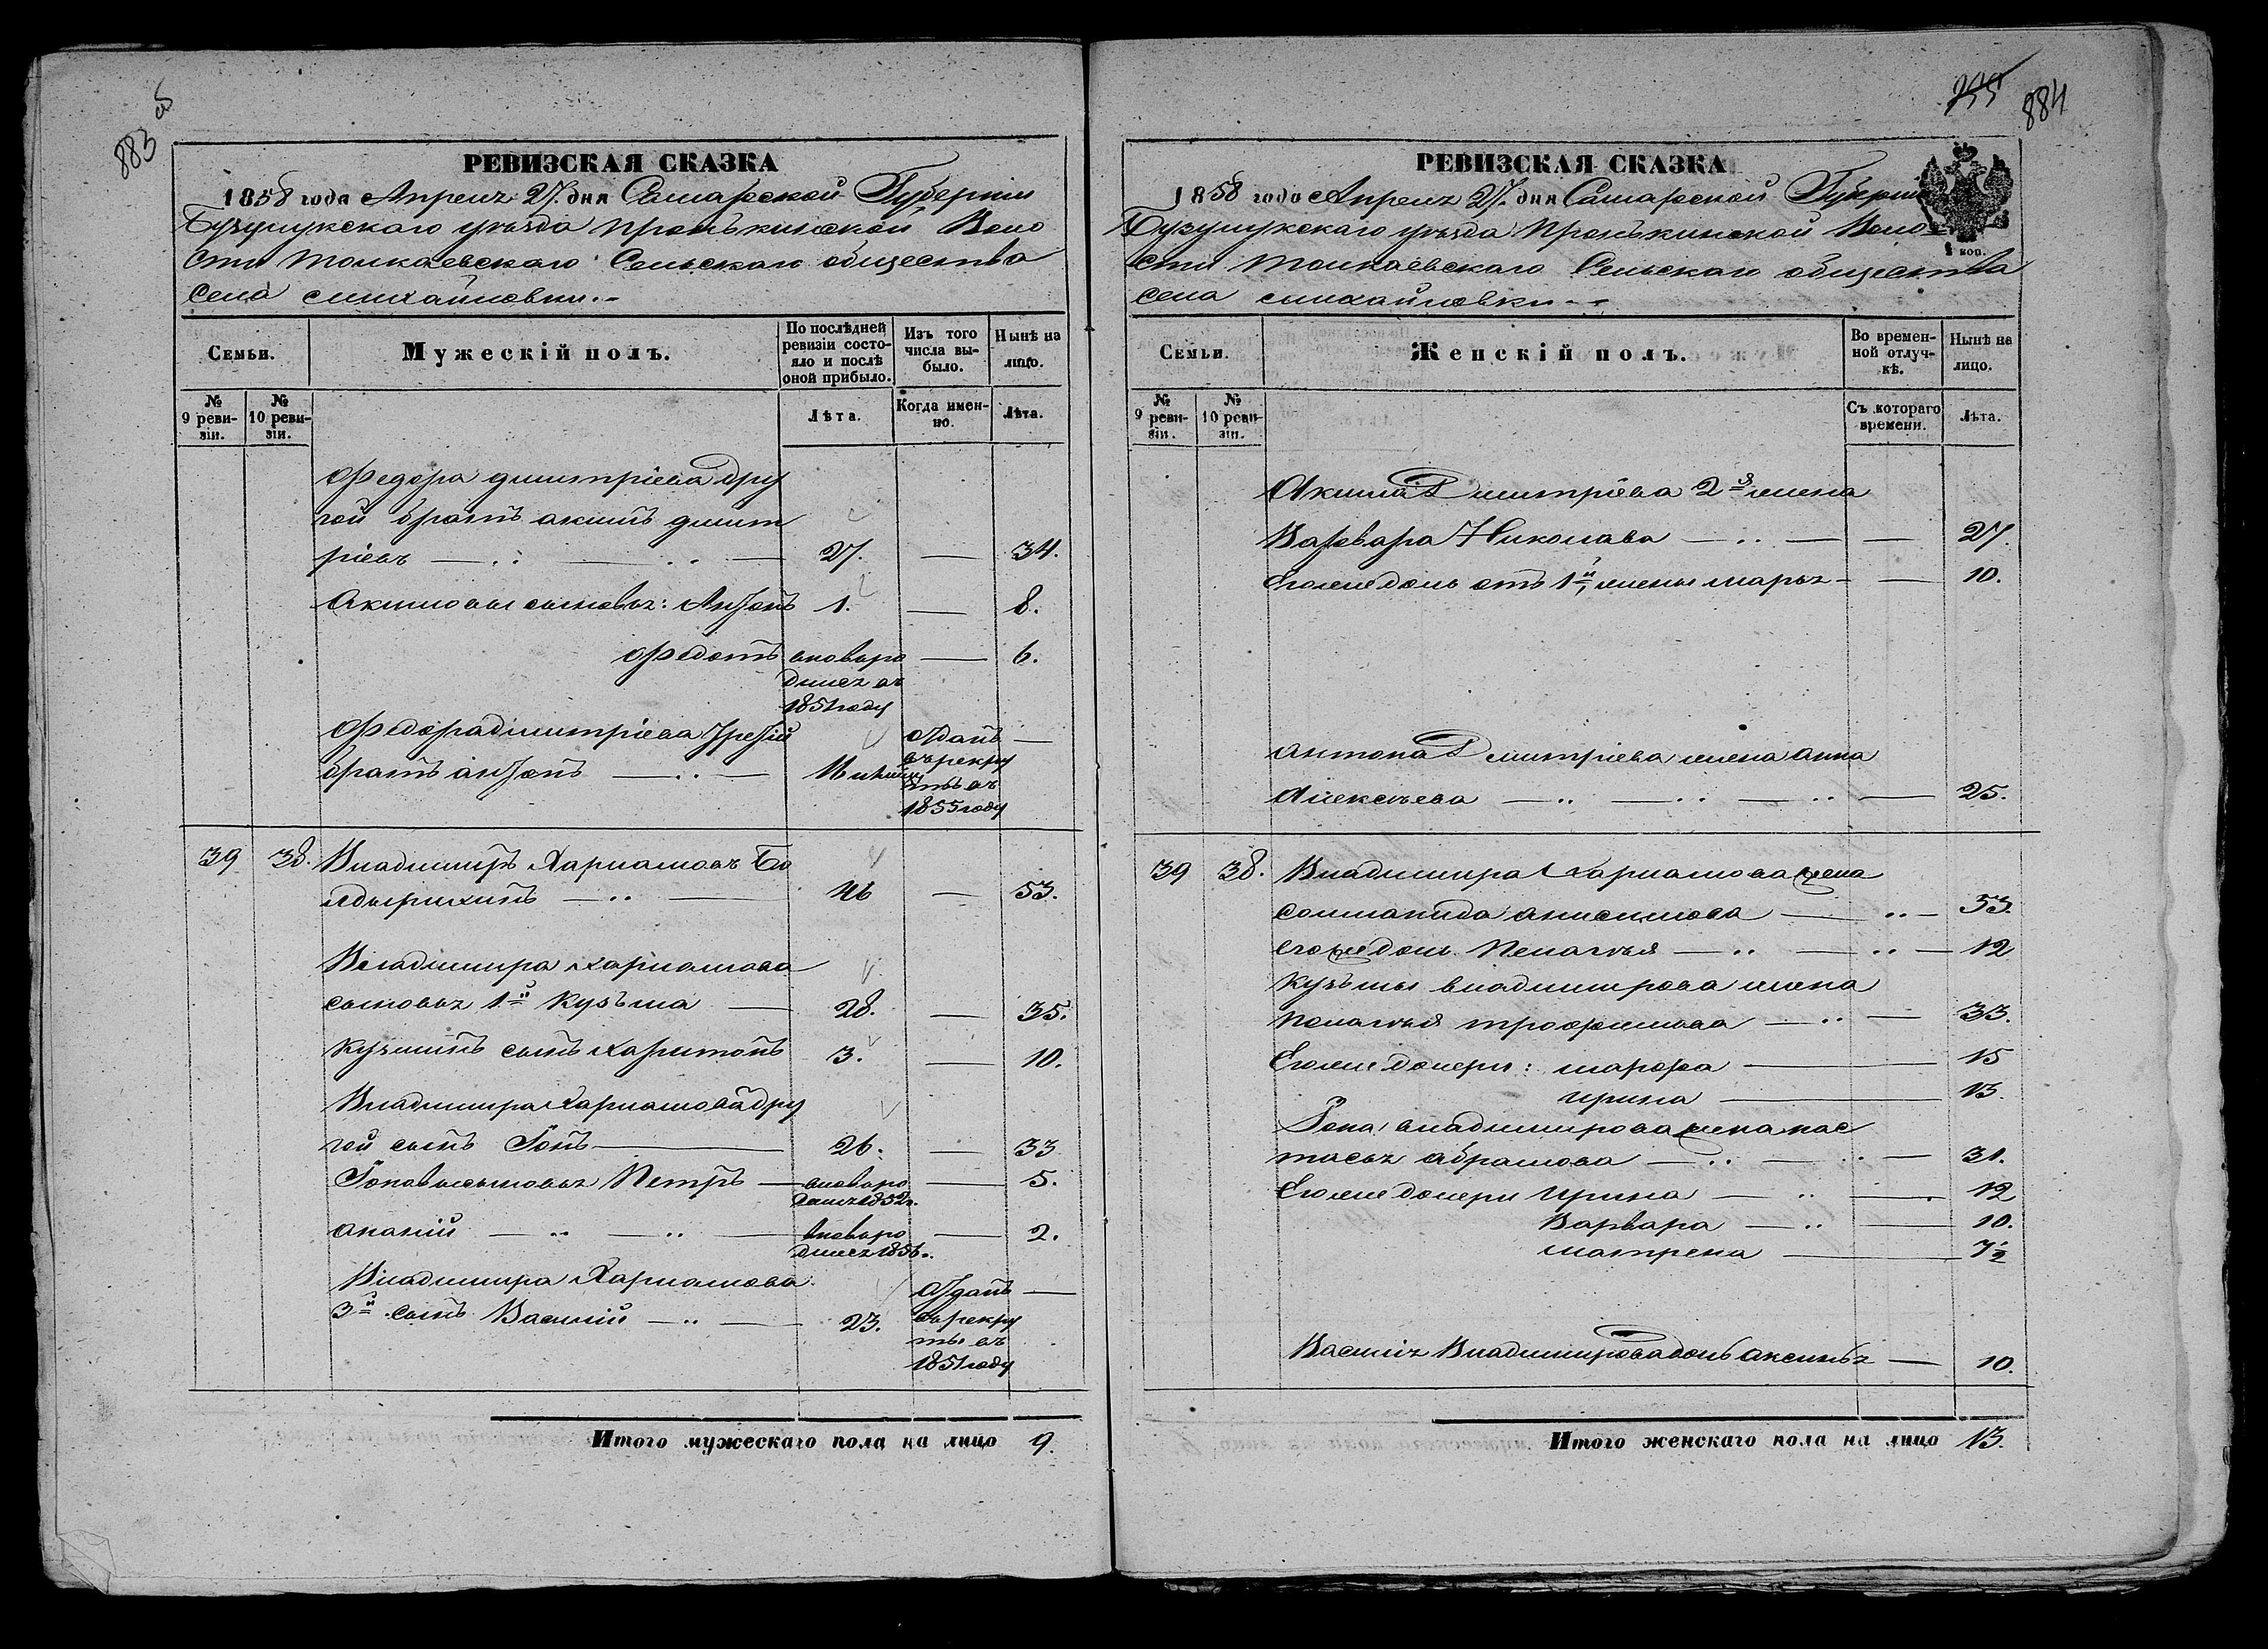 883 об
РЕВИЗСКАЯ СКАЗКА
1858 года Апреля 27. дня Самарской Губерніи
Бузулукскаго уѣзда Пронькинской Воло
сти Толкаевскаго Сельскаго общества
села Михайловки.
Семьи.
Мужескій полъ.
По послѣдней ревизіи состояло и послѣ оной прибыло.
Изъ того числа выбыло.
Нынѣ на лицо.
№ 9 ревизіи.
№ 10 ревизіи.
Лѣта.
Когда именно.
Лѣта.
Федора Дмитріева дру
гой братъ Акимъ Дмит
ріевъ 27. — 34.
Акимовы сыновья: Антонъ 1. — 8.
Федотъ вновьро — 6.
дился въ
1851 году
Федора Дмитріева третій отданъ —
братъ Антонъ въ рекру
ты въ
1855 году
39 38. Владимиръ Харламовъ Бо
лдырихинъ 46 — 53.
Владимира Харламова
сыновья 1й Кузьма 28. — 35.
Кузминъ сынъ Харитонъ 3. — 10.
Владимира Харламова дру
гой сынъ Іонъ 26. — 33
Іоновы сыновья Петръ вновьро — 5.
дился 1852 г.
Ананій вновьро — 2.
дился 1856 г.
Владимира Харламова отданъ —
3й сынъ Василій 23. въ рекру
ты въ
1851 году
Итого мужескаго пола на лицо 9.
884
РЕВИЗСКАЯ СКАЗКА
1858 года Апреля 27. дня Самарской Губерніи
Бузулукскаго уѣзда Пронькинской Воло
сти Толкаевскаго Сельскаго общества
села Михайловки
коп.
Семьи.
Женскій полъ.
Во временной отлучкѣ.
Нынѣ на лицо.
№ 9 ревизіи.
№ 10 ревизіи.
Съ котораго времени.
Лѣта.
Акима Дмитріева 2я жена
Варвара Николаева — 27.
Егоже дочь отъ 1й жены Марья — 10.
Антона Дмитріева жена Анна
Алексѣева — 25.
39 38. Владимира Харламова жена
Соломанида Анисимова — 53.
егоже дочь Пелагѣя — 12
Кузьмы Владимирова жена
Полагѣя Трофимова — 33.
Егоже дочери: Марфа 15
Ирина 13.
Іона Владимирова жена Нас
тасья Абрамова — 31.
Егоже дочери Ирина — 12
Варвара 10.
Матрена 7½
Василія Владимирова дочь Аксинья — 10.
Итого женскаго пола на лицо 13.